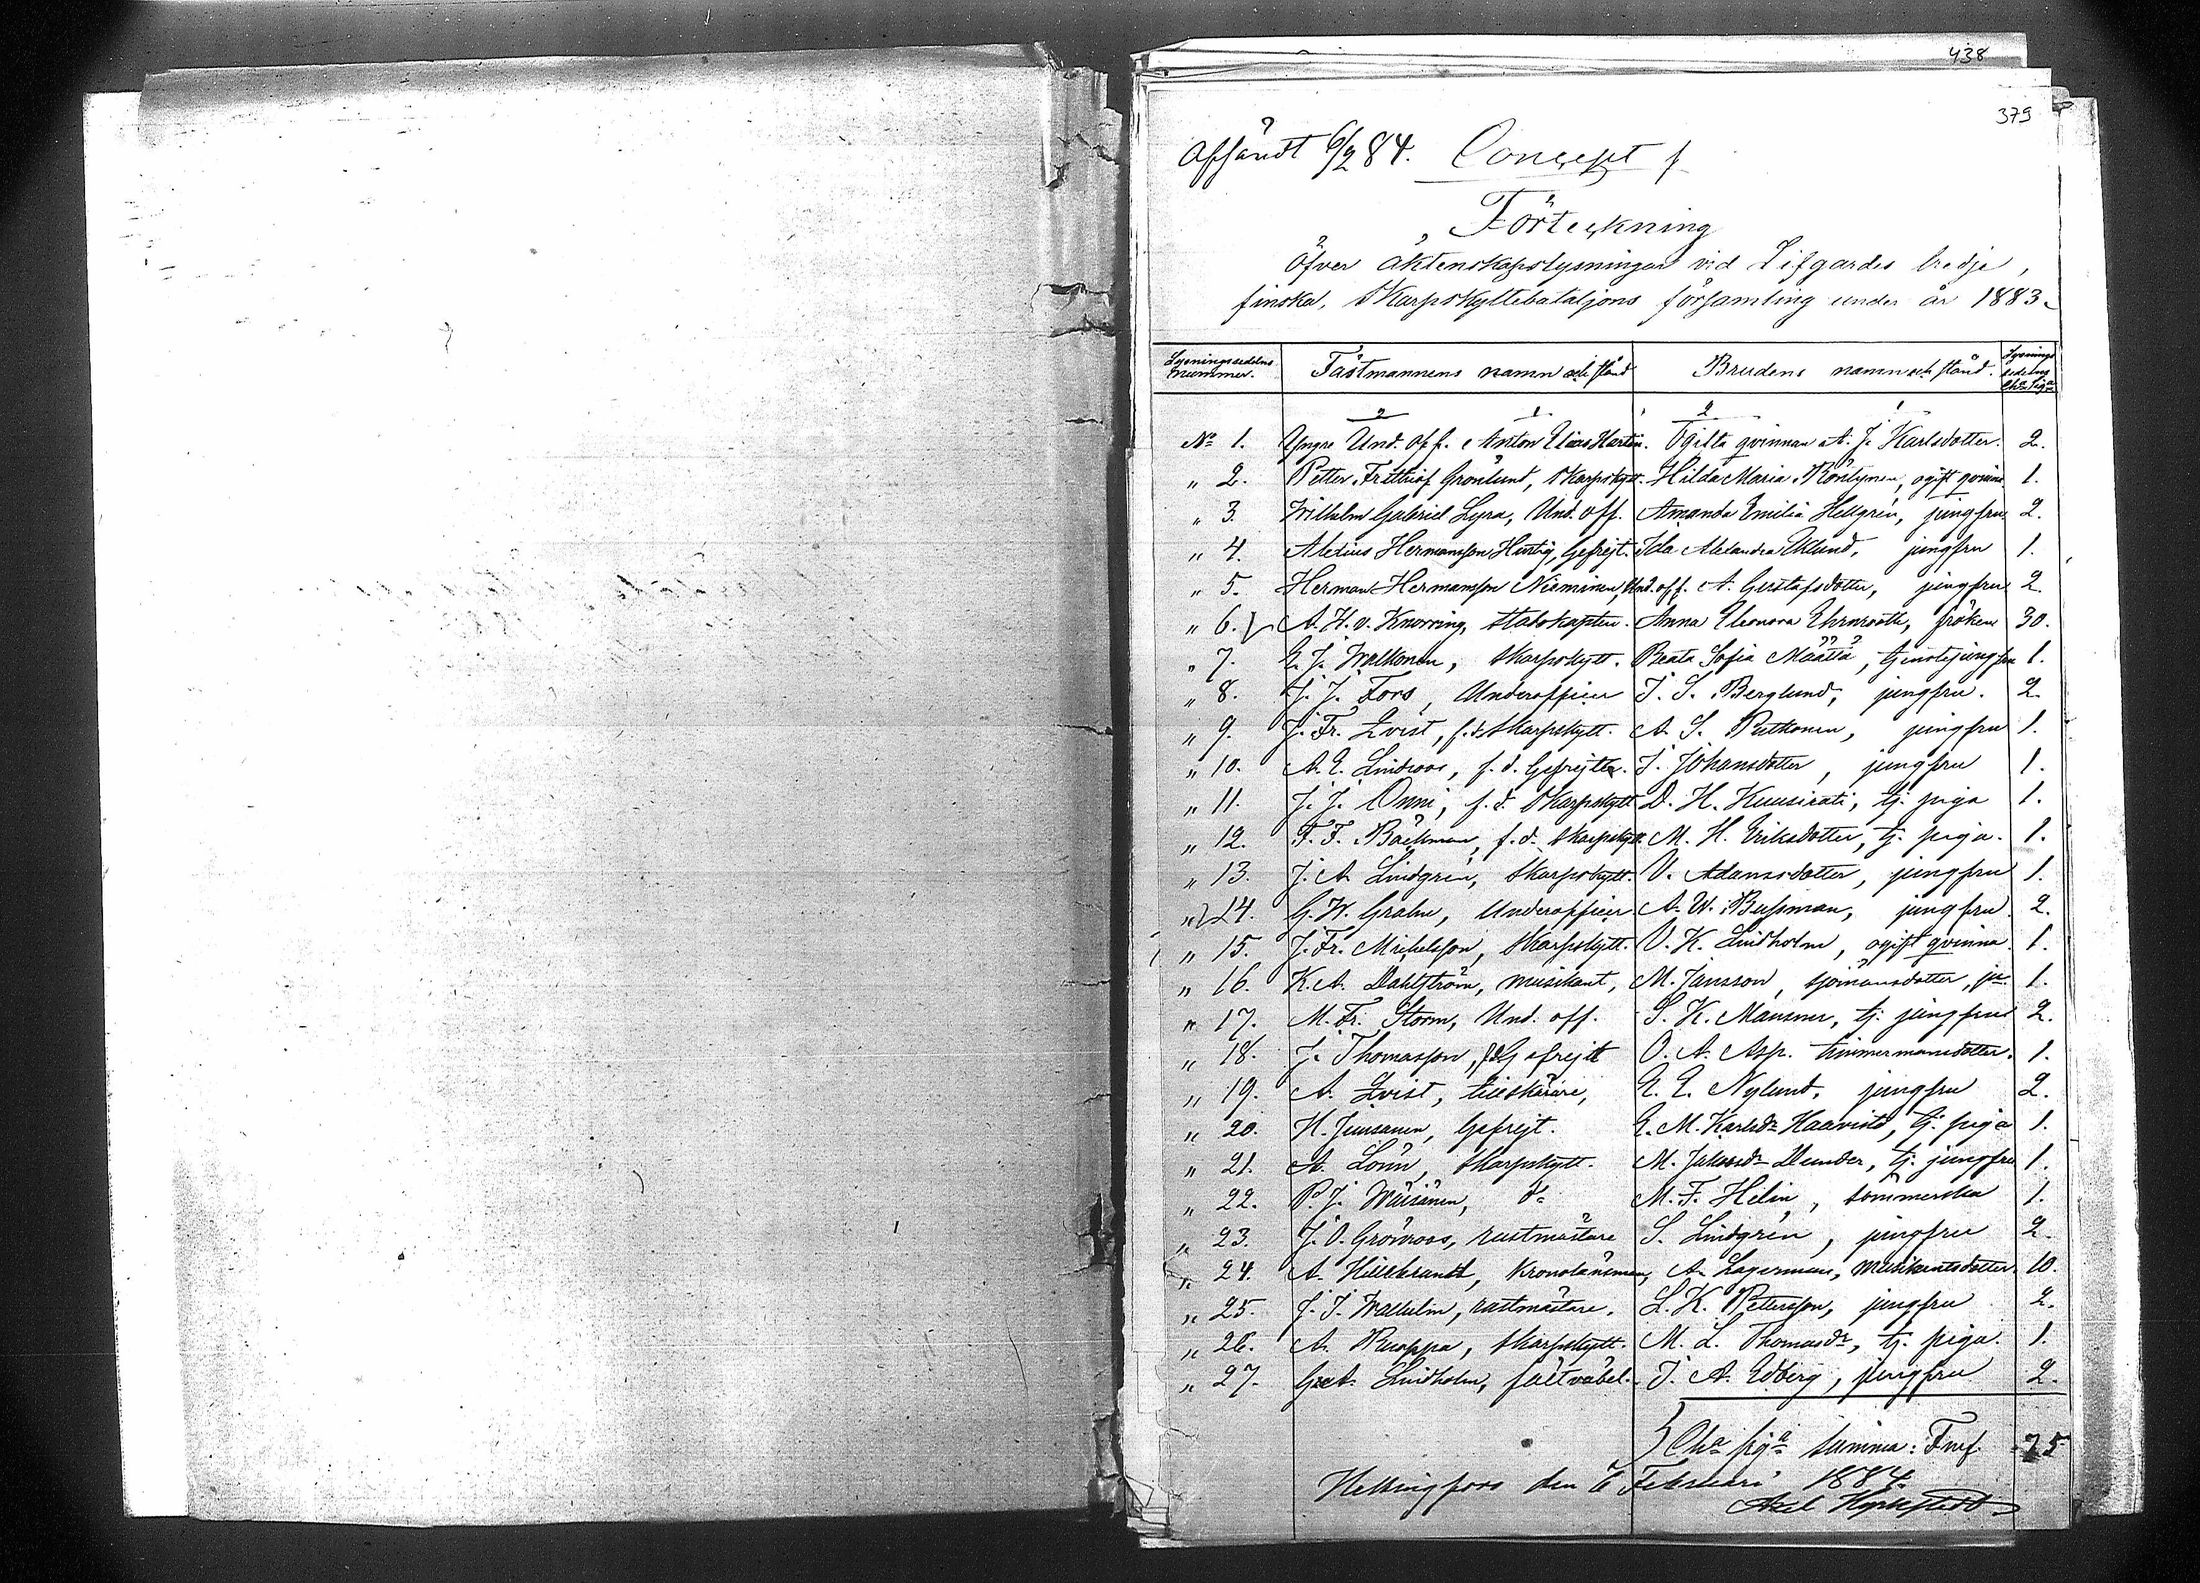 438
379
Afsändt 6/2 84. Concept
Förteckning
öfver äktenskapslysningar vid Lifgardes tredje
finska Skarpskyttebataljons församling under år 1883.
Lysningssedelns nummer. Fästmannens namn och stånd Brudens namn och stånd. Lysnings sedelns
No 1. Yngre Und. off. Anton Elias Martin. Ogifta qvinnan A. J. Karlsdotter. 2.
" 2. Petter Frithiof Grönlund, Skarpskytt. Hilda Maria Röntynen, ogift qvinna 1.
" 3. Wilhelm Gabriel Lyra, Und. off. Amanda Emilia Hellgrén, jungfru 2.
" 4. Alexius Hermansson Hertig, Gefrejt. Ida Alexandra Eklund, jungfru 1.
" 5. Herman Hermansson Nieminen, Und. off. A. Gustafsdotter, jungfru 2.
" 6. A. H. v. Knorring, Stabskapten. Anna Eleonora Ehrnrooth, fröken 30.
" 7. G. J. Walkonen, Skarpskytt. Beata Sofia Määttä, tjenstejungfru 1.
" 8. J. J. Fors, Underofficer J. S. Berglund, jungfru. 2.
" 9. J. Fr. Qvist, f.d. Skarpskytt. A. S. Putkonen, jungfru 1.
" 10. A. E. Lindroos, f. d. Gefrejter. J. Johansdotter, jungfru 1.
" 11. J. J. Onni, f. d. Skarpskytt D. H. Kuusirati, tj. piga 1.
" 12. F. F. Bäckman, f. d. Skarpskytt. M. H. Eriksdotter, tj. piga. 1.
" 13. J. A. Lindgrén, Skarpskytt. V. Adamsdotter, jungfru 1.
" 14. G. W. Grahn, Underofficer. A. W. Bussman, jungfru 2.
" 15. J. Fr. Michelsson, Skarpskytt. V. K. Lindholm, ogift qvinna 1.
" 16. K. A. Dahlström, musikant, M. Jansson, sjömansdotter, 1.
" 17. M. Fr. Storm, Und. off. S. K. Mansner, tj. jungfru 2.
" 18. J. Thomasson, fd Gefrejt O. A. Asp. timmermansdotter. 1.
" 19. A. Qvist, tillskärare, E. E. Nylund, jungfru 2.
" 20. H. Juusanen, Gefrejt. E. M. Karlsdr Haavisto, tj. piga 1.
" 21. A. Lönn, Skarpskytt. M. Jakobsdr Dunder, tj. jungfru 1.
" 22. P. J. Wäisänen, do M. F. Helin, sömmerska 1.
" 23. J. O. Grönroos, rustmästare S. Lindgrén, jungfru 2.
" 24. A. Hillebrandt, Kronolänsman, A. Lagerman, Musikantsdotter 10.
" 25. J. J. Wallulin, rustmästare. L. K. Pettersson, jungfru 2.
" 26. A. Ruoppa, Skarpskytt. M. L. Thomasdr, tj. piga. 1.
" 27. G. A. Lindholm, fältväbel. J. A. Edberg, jungfru 2.
Cha sig:a summa: Fmf 75
Helsingfors den 6 Februari 1884.
Axel